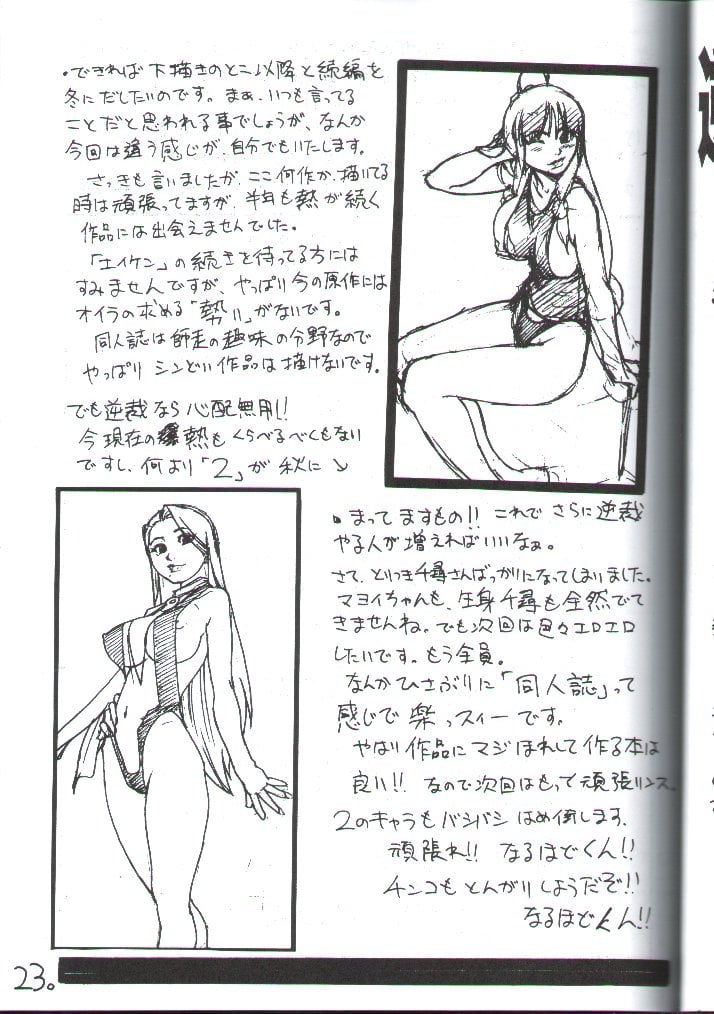 ・できれば下描きのとこ以降と続編を
冬にだしたいのです。まぁ、いつも言ってる
ことだと思われる事でしょうが、なんか
今回は違う感じが、自分でもいたします。
さっきも言いましたが、ここ何作か、描いてる
時は頑張ってますが、半年も熱が続く
作品には出会えませんでした。
「エイケン」の続きを待ってる方には
すみませんですが、やっぱり今の原作には
オイラの求める「勢い」がないです。
同人誌は師走の趣味の分野なので
やっぱり シンドい作品は描けないです。
でも逆裁なら心配無用!!
今現在の熱もくらべるべくもない
ですし、何より「2」が秋に↘
・まってますもの!! これでさらに逆裁
やる人が増えればいいなぁ。
さて、とりつき千尋さんばっかりになってしまいました。
マヨイちゃんも、生身千尋も全然でて
きませんね。でも次回は色々エロエロ
したいです。もう全員。
なんかひさぶりに「同人誌」って
感じで楽っスィーです。
やはり作品にマジほれして作る本は
良い!! なので次回はもって頑張リンス
2のキャラもバシバシはめ倒します.
頑張れ!! なるほどくん!!
チンコもとんがりしようだぞ!!
なるほどくん!!
23。